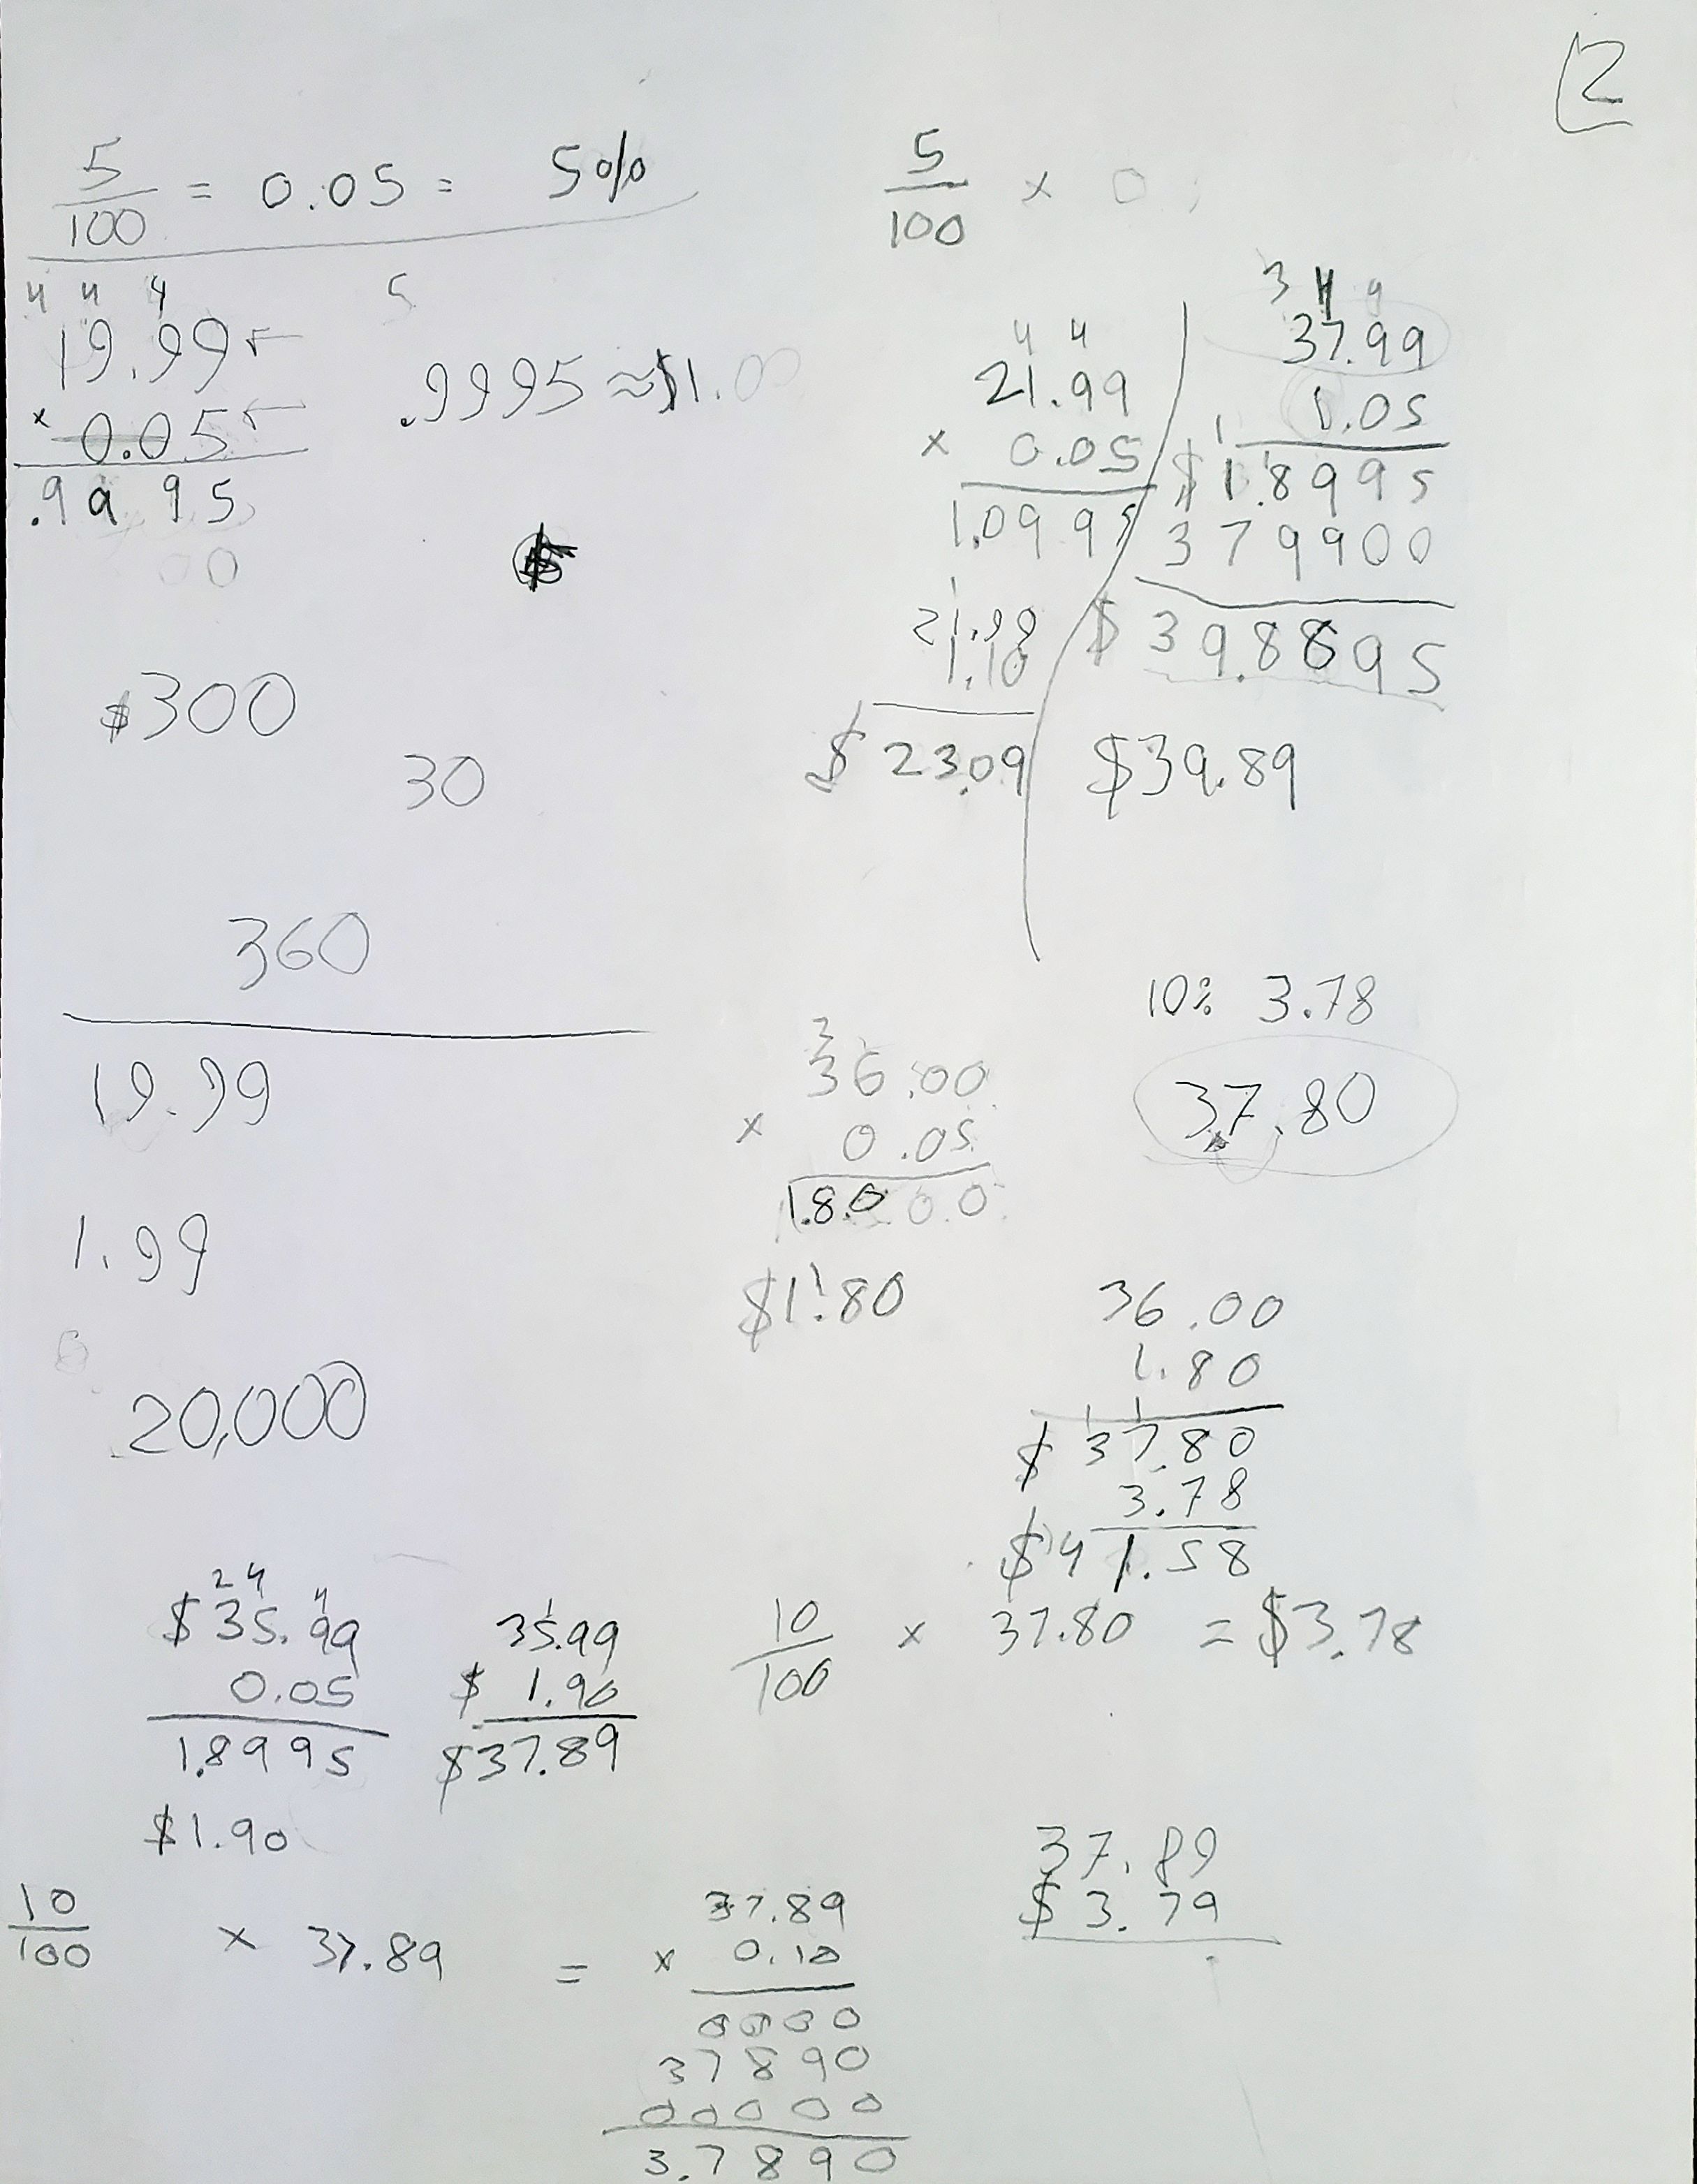 2
5/100 = 0.05 = 5%
5/100 × 0
4 4 4
19.99
× 0.05
.9995
00
5
.9995 ≈ $1.00
$
$300
30
360
19.99
1.99
20,000
4 4
21.99
× 0.05
1.0995
1
21.99
1.10
$ 23.09
3 4
37.99
1.05
1 1
$ 1.8995
379900
$ 39.8895
$39.89
10% 3.78
37.80
36.00
× 0.05
1.8000
$1.80
36.00
1.80
1 1
$ 37.80
3.78
$41.58
10/100 × 37.80 = $3.78
2 4 4
$35.99
0.05
1.8995
$1.90
1
35.99
$ 1.90
$37.89
10/100 × 37.89 =
37.89
× 0.10
0000
37890
00000
3.7890
37.89
$3.79